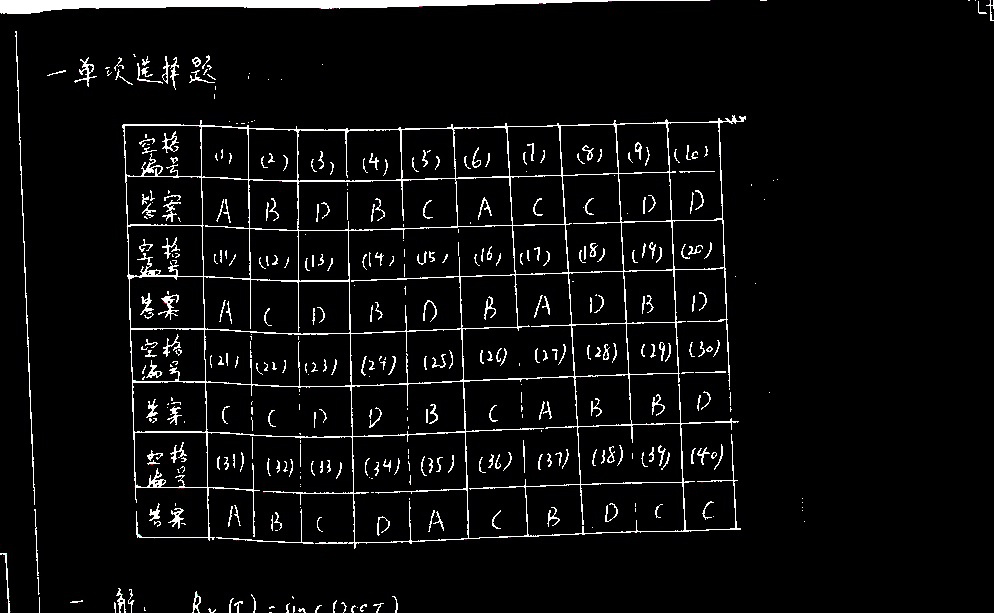 一 单项选择题
空格编号 (1) (2) (3) (4) (5) (6) (7) (8) (9) (10)
答案 A B D B C A C C D D
空格编号 (11) (12) (13) (14) (15) (16) (17) (18) (19) (20)
答案 A C D B D B A D B D
空格编号 (21) (22) (23) (24) (25) (26) (27) (28) (29) (30)
答案 C C D D B C A B B D
空格编号 (31) (32) (33) (34) (35) (36) (37) (38) (39) (40)
答案 A B C D A C B D C C
解: Rx(τ) = sinc(